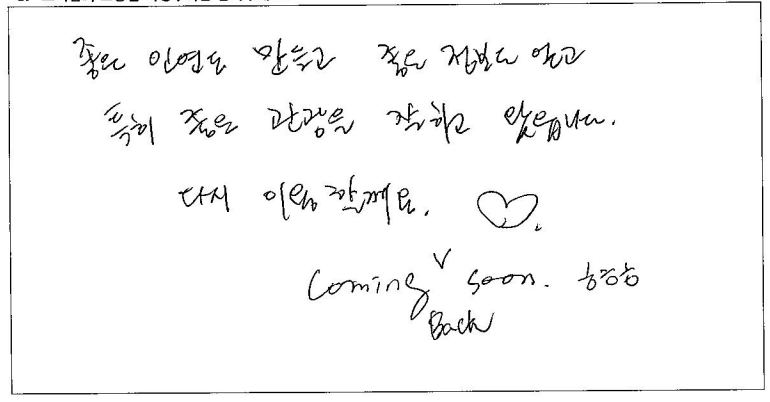 좋은 인연도 만들고 좋은 정보도 얻고
특히 좋은 관광을 잘하고 갑니다.
다시 이용할께요. ♡.
Coming ∨ soon. ㅎㅎㅎ
Back